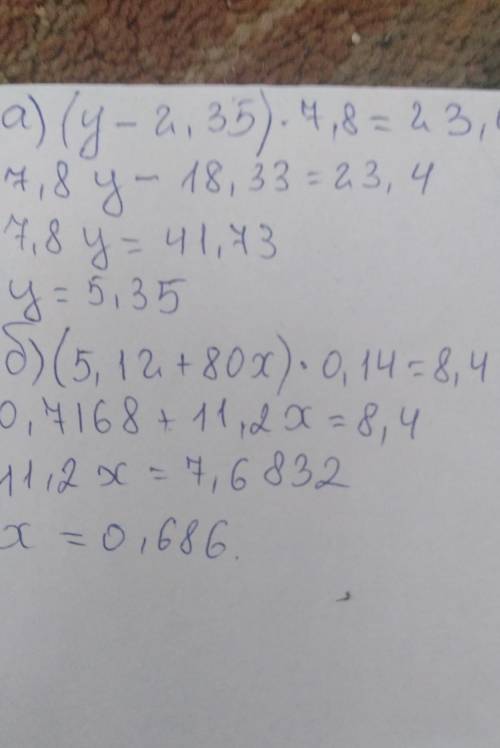 а) (y - 2,35) · 7,8 = 23,
7,8 y - 18,33 = 23,4
7,8 y = 41,73
y = 5,35
б) (5,12 + 80x) · 0,14 = 8,4
0,7168 + 11,2 x = 8,4
11,2 x = 7,6832
x = 0,686.